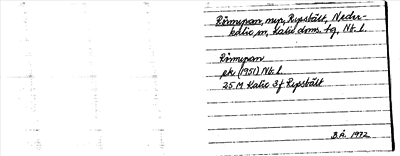 Rönnpan, myr, Ripsbält, Neder-
kalix sn, Kalix doms. tg, Nb. l.
Rönnpan
ek (1951) Nb. l.
25 M Kalix 3 f Ripsbält
B.Å. 1972